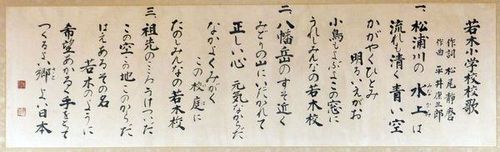 若木小学校校歌
作詞 松尾静香
作曲 平井康三郎
一、松浦川の水上は
流れも清く青い空
かがやくひとみ
明るいえがお
小鳥もよぶよこの窓に
うれしみんなの若木校
二、八幡岳のすそ近く
みどりの山にいだかれて
正しい心 元気なからだ
なかよくみがく
この校庭に
たのしみんなの若木校
三、祖先のこらうけついだ
この空この地このからだ
はえあるその名
若木のように
希望あかるく手をとって
つくるよい郷よい日本